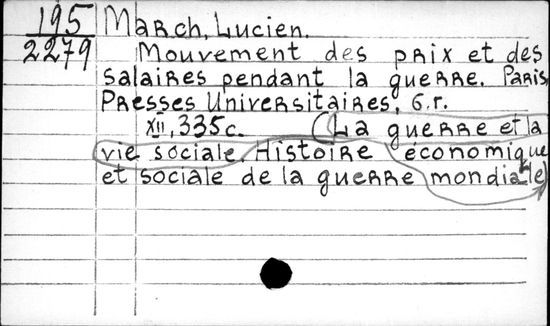 195 March, Lucien.
2279 Mouvement des prix et des
salaires pendant la guerre. Paris,
Presses Universitaires, б.г.
XII, 335с. (La guerre et la
vie sociale. Histoire économique
et sociale de la guerre mondiale)